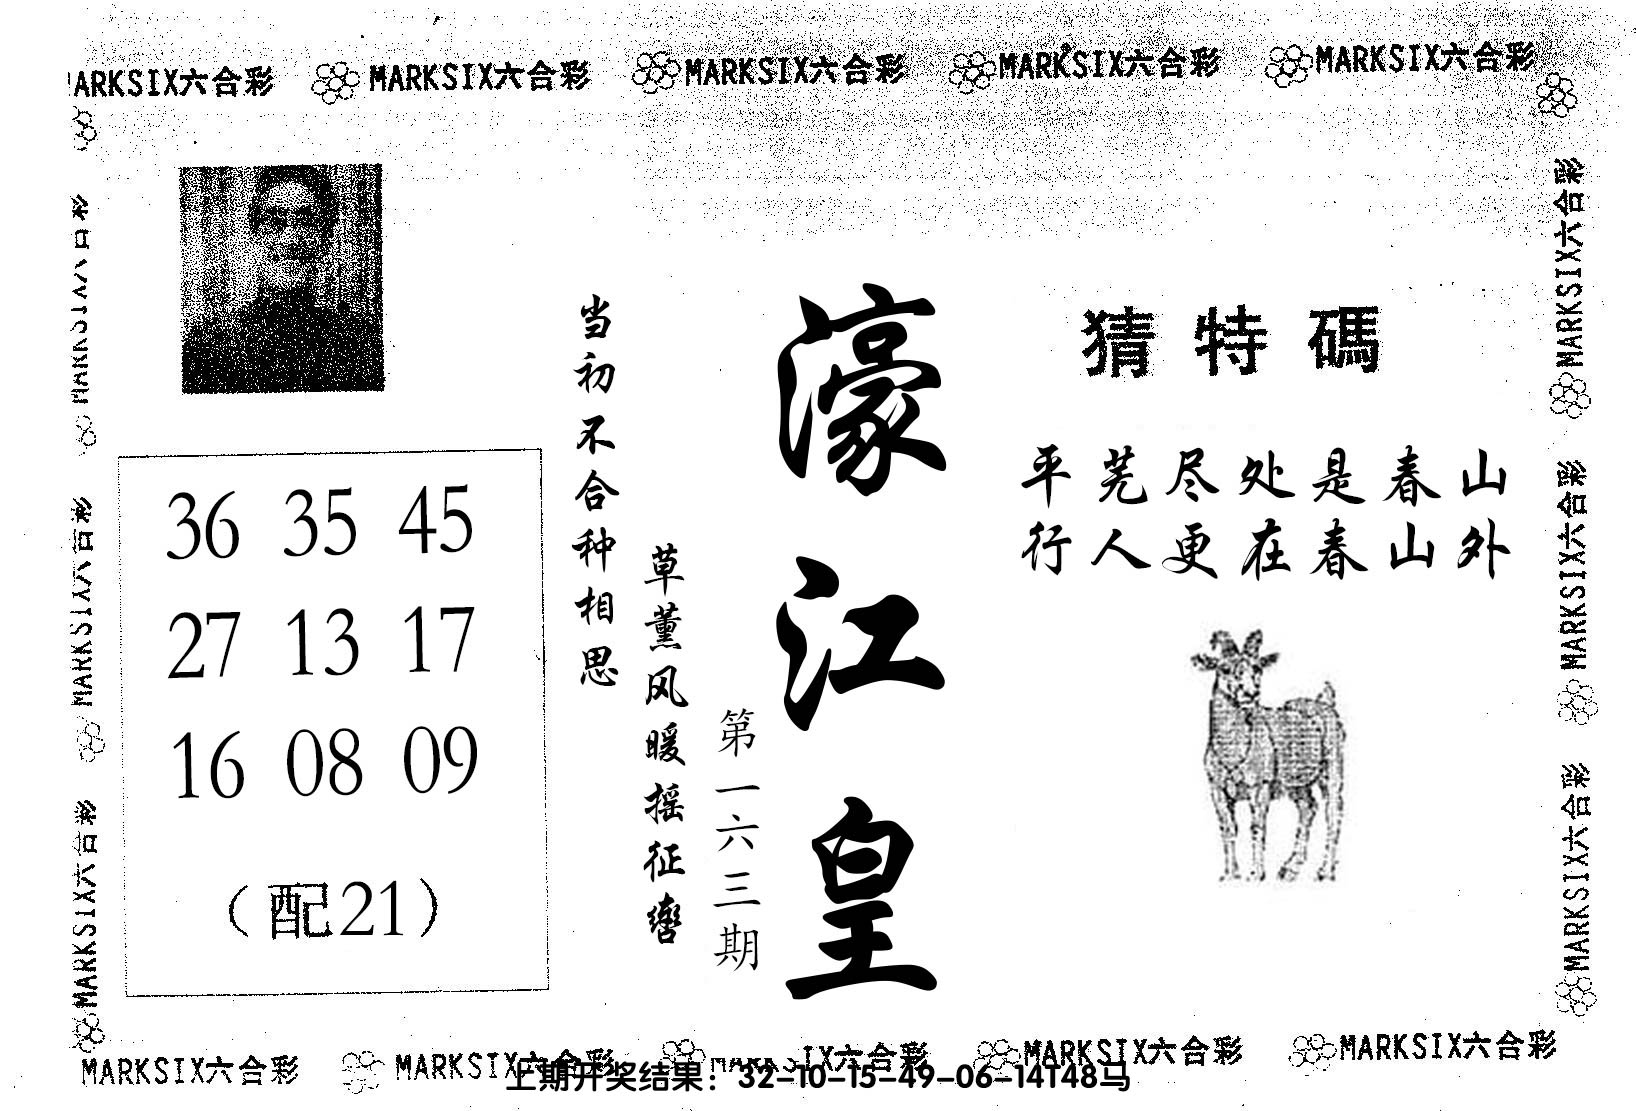 MARKSIX六合彩 MARKSIX六合彩 MARKSIX六合彩 MARKSIX六合彩 MARKSIX六合彩
MARKSIX六合彩
MARKSIX六合彩
MARKSIX六合彩
猜特碼
平芜尽处是春山
行人更在春山外
濠江皇
第一六三期
草薰风暖摇征辔
当初不合种相思
36 35 45
27 13 17
16 08 09
（配21）
MARKSIX六合彩
MARKSIX六合彩
MARKSIX六合彩
MARKSIX六合彩 MARKSIX六合彩 MARKSIX六合彩 MARKSIX六合彩 MARKSIX六合彩
上期开奖结果：32-10-15-49-06-14T48马